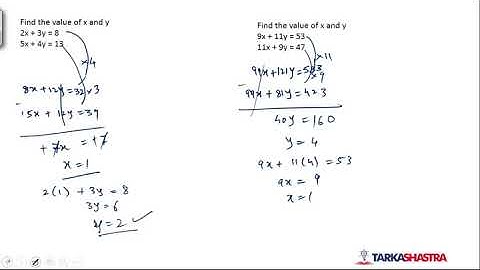 Find the value of x and y
2x + 3y = 8
5x + 4y = 13
x4
8x + 12y = 32
x3
15x + 12y = 39
+ 7x = +7
x = 1
2(1) + 3y = 8
3y = 6
y = 2
Find the value of x and y
9x + 11y = 53
11x + 9y = 47
x11
99x + 121y = 583
x9
99x + 81y = 423
40y = 160
y = 4
9x + 11(4) = 53
9x = 9
x = 1
TARKASHASTRA